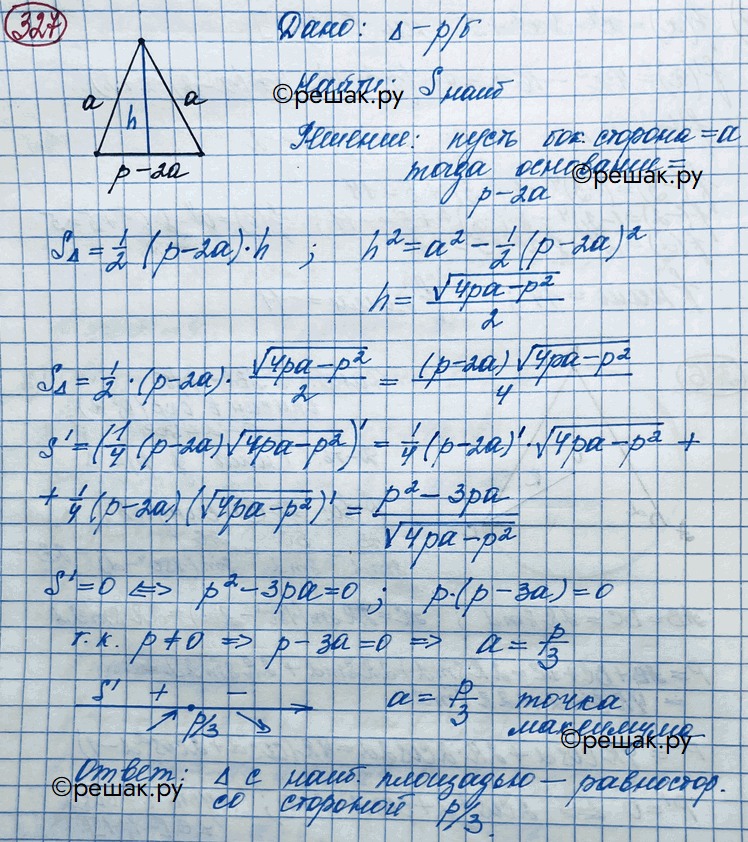 327
Дано: Δ – р/б
a
a
h
p-2a
Найти: S наиб
©решак.ру
Решение: пусть бок. сторона = a
тогда основание =
©решак.ру
p-2a
S_Δ = 1/2 (p-2a)·h ; h² = a² - 1/2 (p-2a)²
h = √(4pa-p²)/2
S_Δ = 1/2 · (p-2a) · √(4pa-p²)/2 = (p-2a)√(4pa-p²)/4
S' = (1/4 (p-2a) √(4pa-p²))' = 1/4 (p-2a)' · √(4pa-p²) +
+ 1/4 (p-2a) (√(4pa-p²))' = (p²-3pa)/√(4pa-p²)
S' = 0 ⇔ p²-3pa = 0 ; p·(p-3a) = 0
т.к. p ≠ 0 ⇒ p-3a = 0 ⇒ a = p/3
S' + –
p/3
a = p/3 точка
максимума
©решак.ру
Ответ: Δ с наиб. площадью – равностор.
©решак.ру
со стороной p/3.